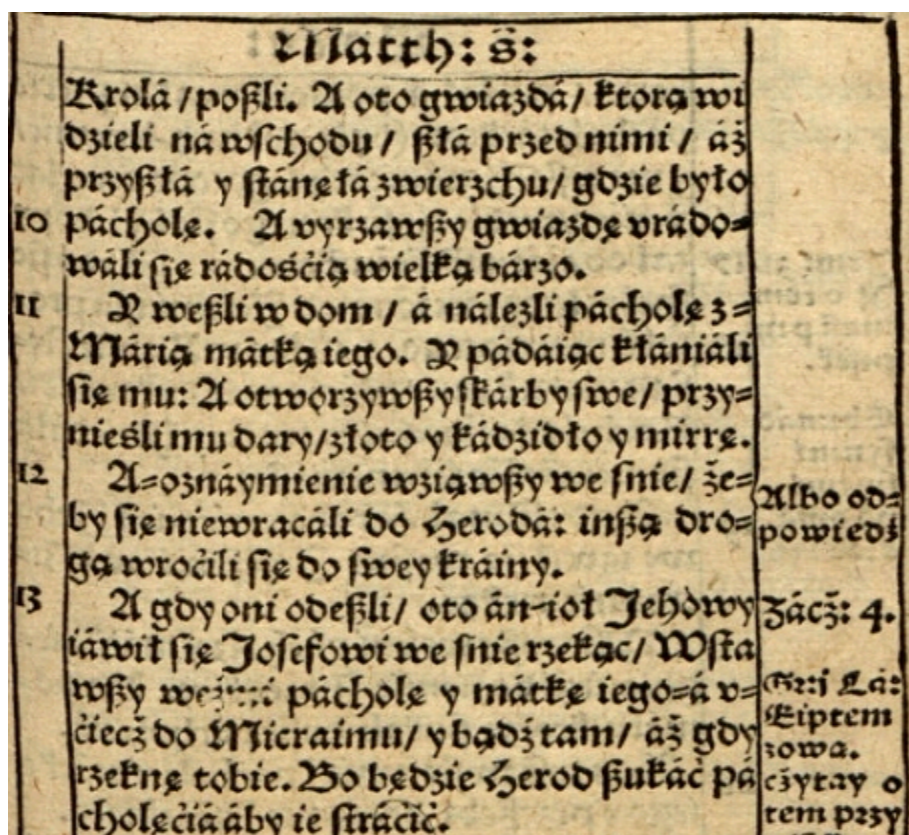 Matth: ś:
Krolá / poßli. A oto gwiazdá / ktorą wi
dzieli ná wschodu / ßłá przed nimi / áż
przyßłá y stánęłá zwierzchu / gdzie było
10 pácholę. A vyrzawßy gwiazdę vrádo=
wáli się rádośćią wielką bárzo.
11 Y weßli w dom / á nálezli pácholę z=
Márią mátką iego. Y pádáiąc kłániáli
się mu: A otworzywßy skárby swe / przy=
nieśli mu dary / złoto y kádzidło y mirrę.
12 A=oznáymienie wziąwßy we snie / że=
by się niewracáli do Herodá: inßą dro=
gą wroćili się do swey kráiny.
Albo od=
powiedź
13 A gdy oni odeßli / oto án-ioł Jehowy
iáwił się Josefowi we snie rzekąc / Wsta
wßy páchole y mátkę iego=á v=
ćiecż do Micraimu / y bądź tam / áż gdy
rzeknę tobie. Bo będzie Herod ßukáć pá
cholęćiá áby ie stráćić.
Zácż: 4.
Lá:
Eiptem
zowa.
cżytay o
tem przy